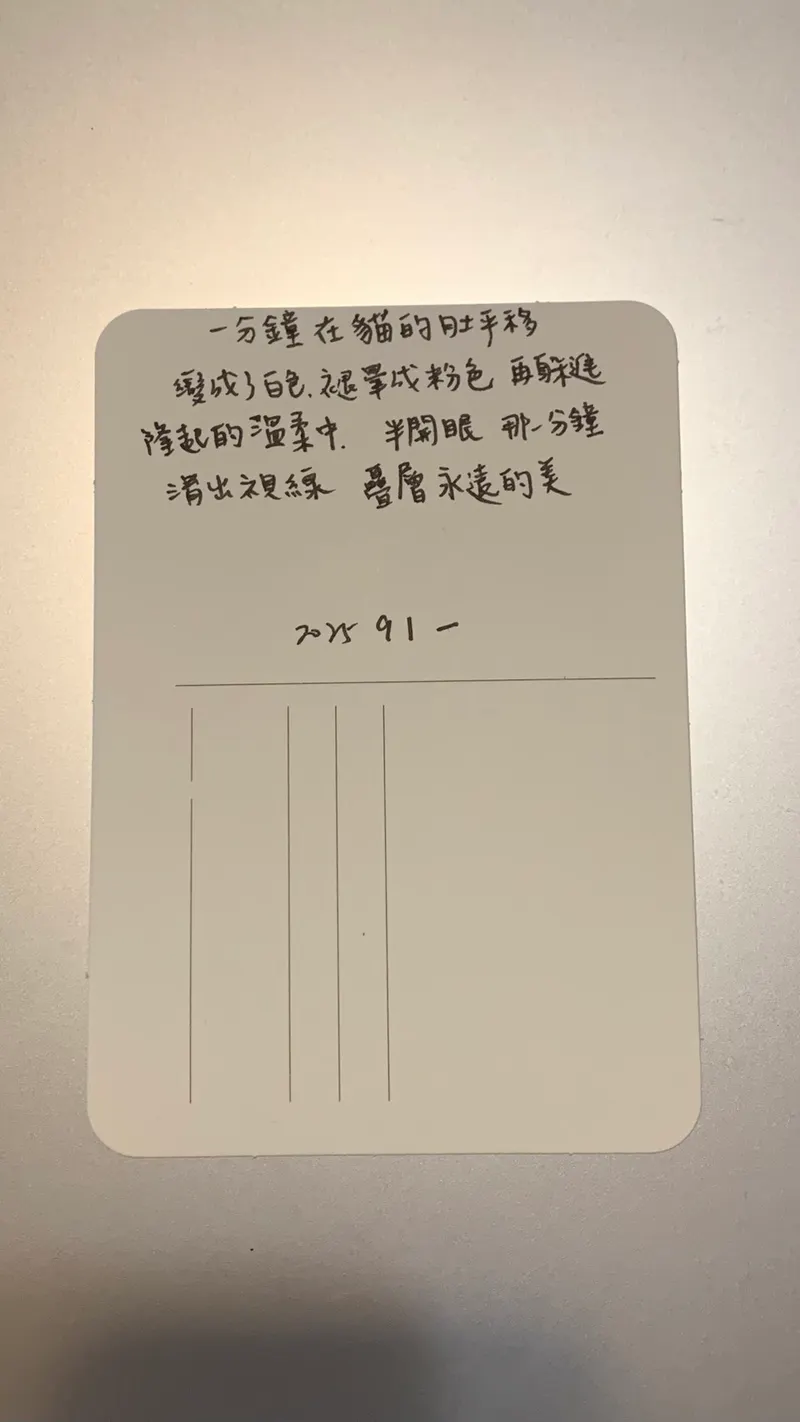 一分鐘 在 貓的肚平移
變成了白色、褪罩成粉色 再躲進
隆起的溫柔中. 半開眼 那一分鐘
滑出視線 疊層永遠的美
2025 9 1 一